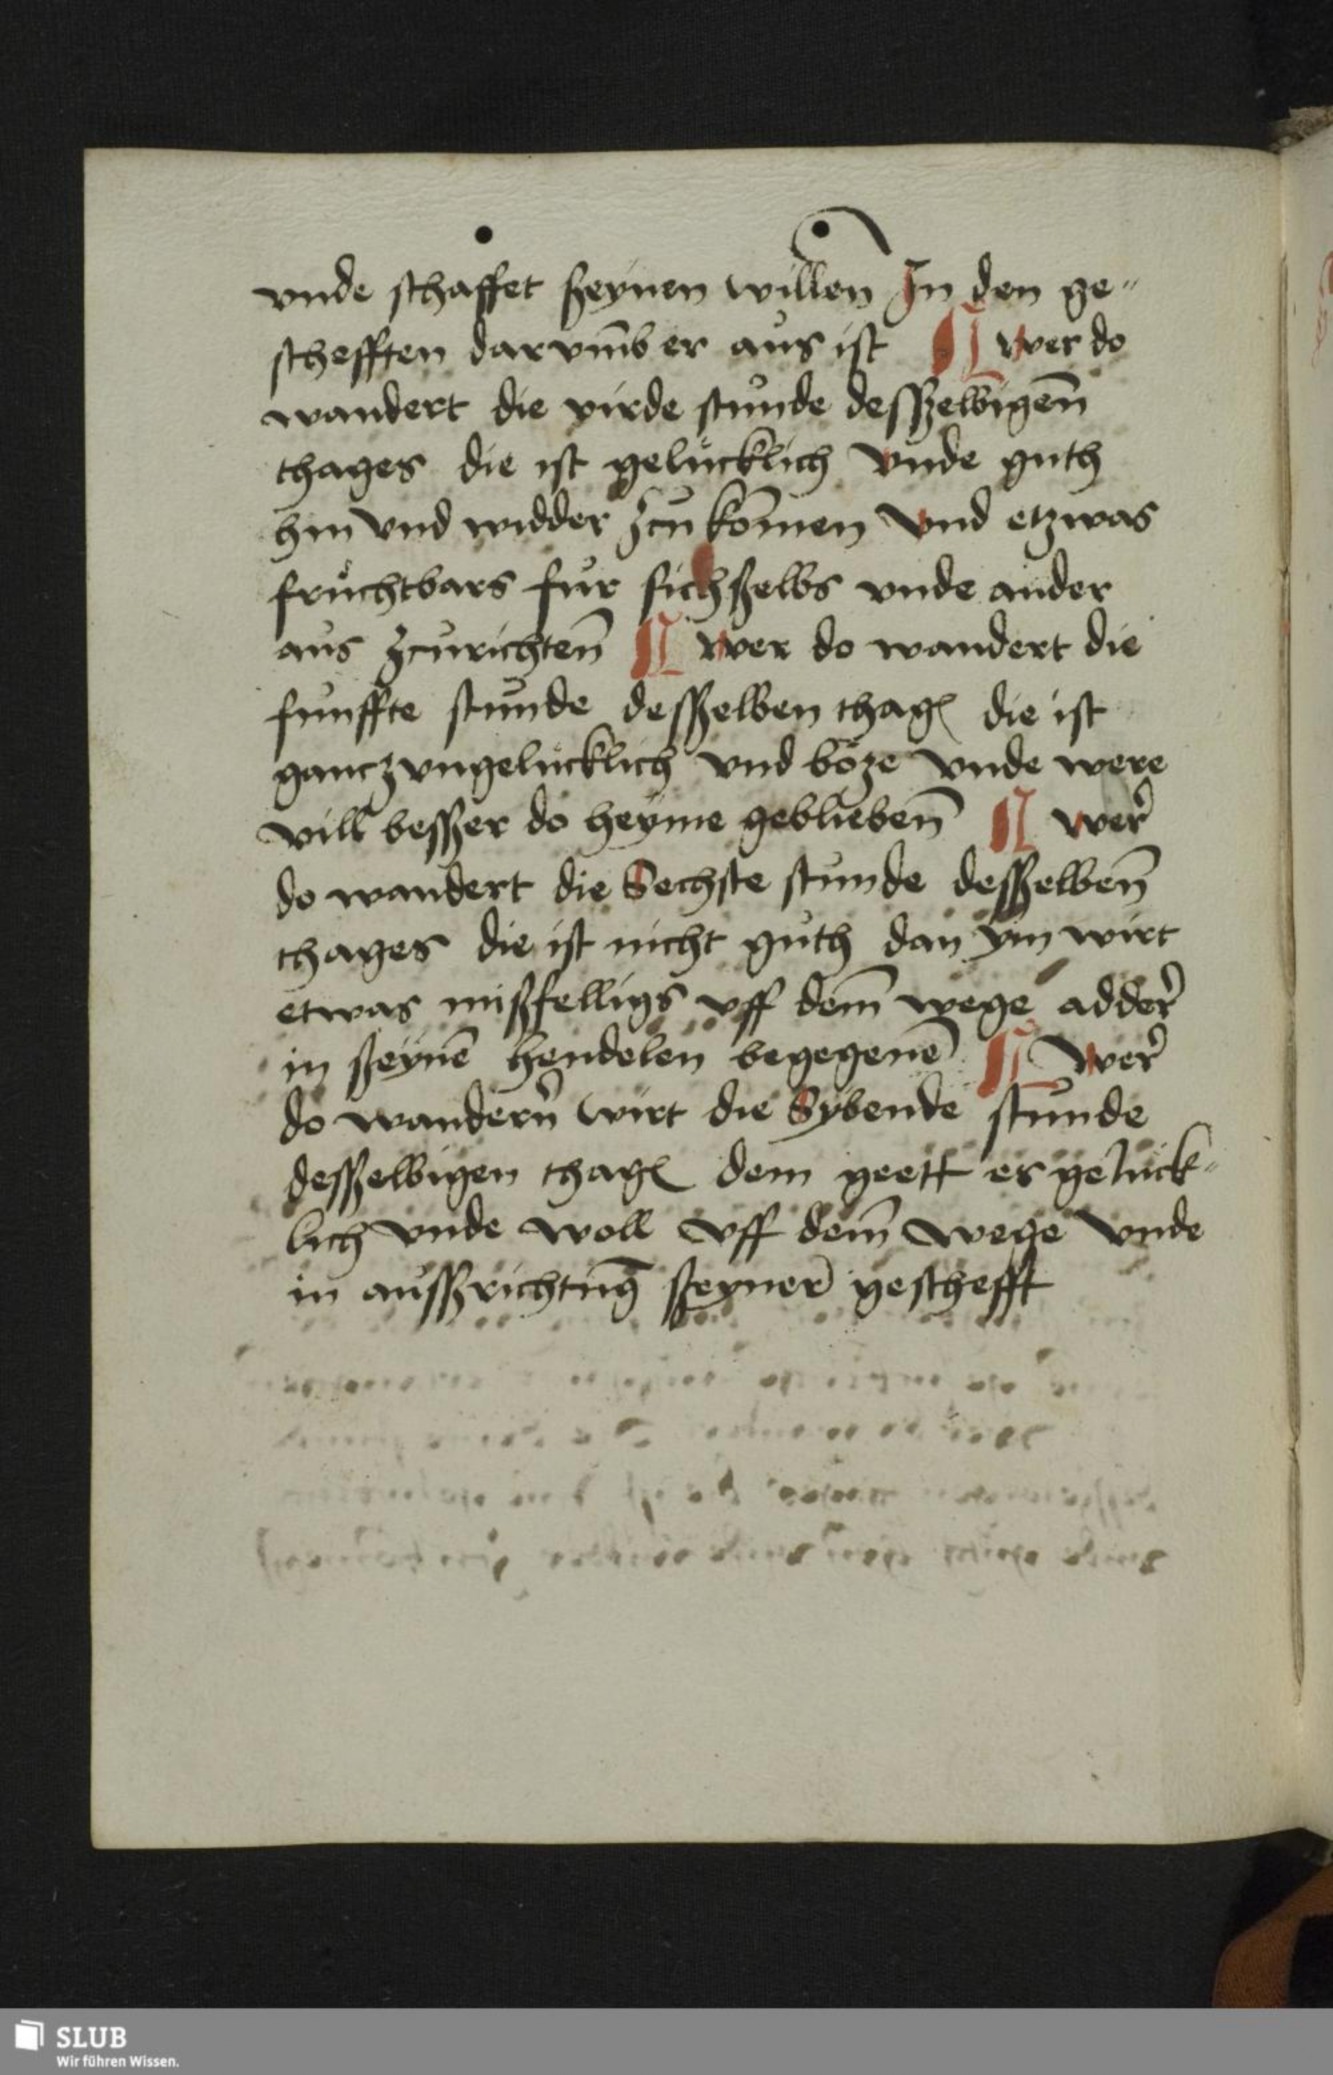 vnde schaffet ſzeynen willen̄ In den ge-
schefften darvm̄b er aus ist ¶ wer do
wandert die virde stunde desſzelbigen̄
thages die ist gelucklich vnde guth
hin vnd widder zcu kom̄en vnd etzwas
fruchtbars fur sich ſzelbs vnde ander
aus zcurichten̄ ¶ wer do wandert die
funffte stunde desſzelben thagſ die ist
gancz vngelucklich vnd böze vnde were
vill besſzer do heyme geblieben̄ ¶ wer
do wandert die Sechste stunde desſzelben̄
thages die ist nicht guth dan ym wirt
etwas mißfelligs vff dem̄ wege adder
in ſzeynē hendelen begegenē ¶ Wer
do wandern wirt die Sybende stunde
desſzelbigen thagſ dem geett es geluck-
lich vnde woll vff dem̄ wege vnde
in ausſzrichtūg ſzeyner geschefft
SLUB
Wir führen Wissen.